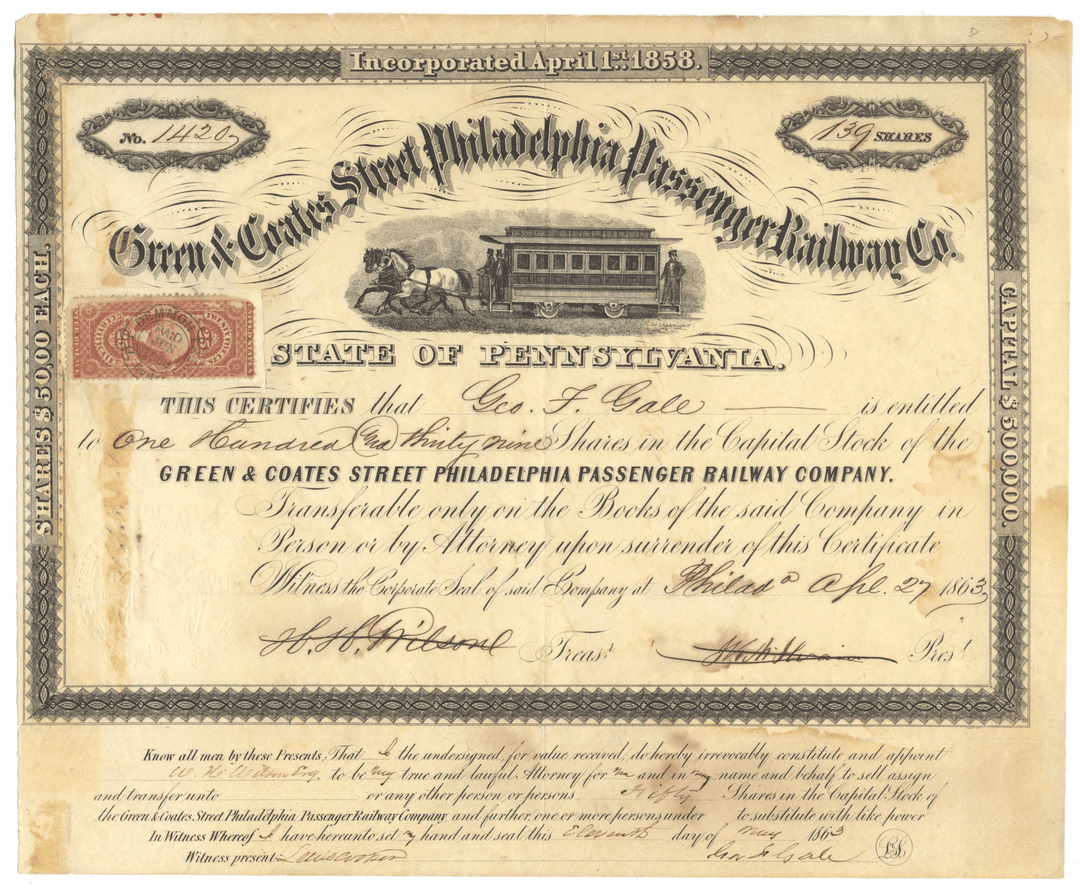 Incorporated April 1st. 1858.
No. 1420
139 SHARES
Green & Coates Street Philadelphia Passenger Railway Co.
SHARES $50,00 EACH.
CAPITAL $ 500,000.
STATE OF PENNSYLVANIA.
THIS CERTIFIES that Geo. F. Gale is entitled
to One Hundred and thirty nine Shares in the Capital Stock of the
GREEN & COATES STREET PHILADELPHIA PASSENGER RAILWAY COMPANY.
Transferable only on the Books of the said Company in
Person or by Attorney upon surrender of this Certificate
Witness the Corporate Seal of said Company at Philada Apl. 27 1863
H. H. Wilson Treasr. Prest.
Know all men by these Presents, That I the undersigned, for value received, do hereby irrevocably constitute and appoint
to be my true and lawful Attorney for me and in my name and behalf to sell assign
and transfer unto or any other person or persons Fifty Shares in the Capital Stock of
the Green & Coates Street Philadelphia Passenger Railway Company and further, one or more persons under to substitute with like power
In Witness Whereof I have hereunto set my hand and seal this Eleventh day of May 1863
Witness present: Geo F Gale L.S.